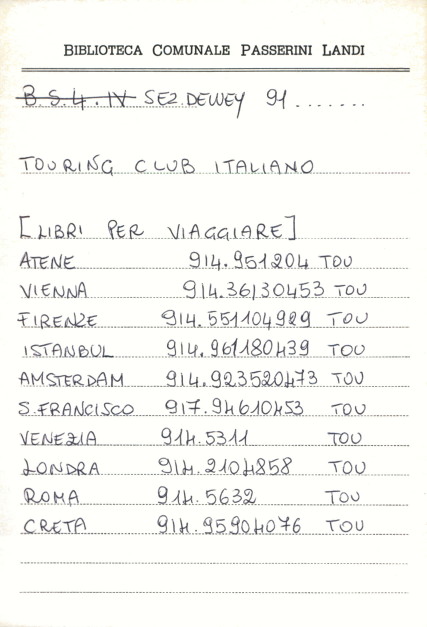 BIBLIOTECA COMUNALE PASSERINI LANDI
B.S.4.IV SEZ.DEWEY 91.......
TOURING CLUB ITALIANO
[LIBRI PER VIAGGIARE]
ATENE 914.951204 TOU
VIENNA 914.36130453 TOU
FIRENZE 914.551104929 TOU
ISTANBUL 914.961180439 TOU
AMSTERDAM 914.923520473 TOU
S.FRANCISCO 917.94610453 TOU
VENEZIA 914.5311 TOU
LONDRA 914.2104858 TOU
ROMA 914.5632 TOU
CRETA 914.95904076 TOU